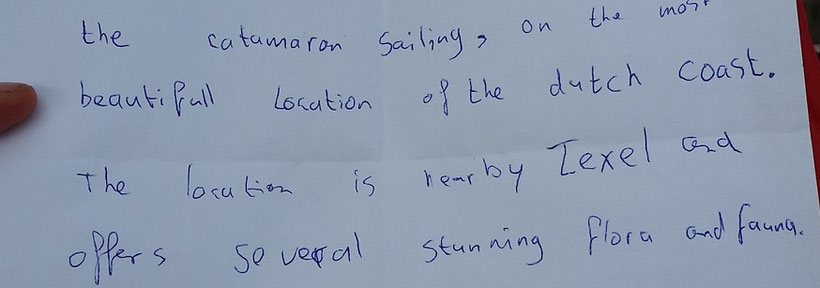 the catamaron sailing, on the most
beautifull location of the dutch coast.
The location is nearby Texel and
offers several stunning flora and fauna.